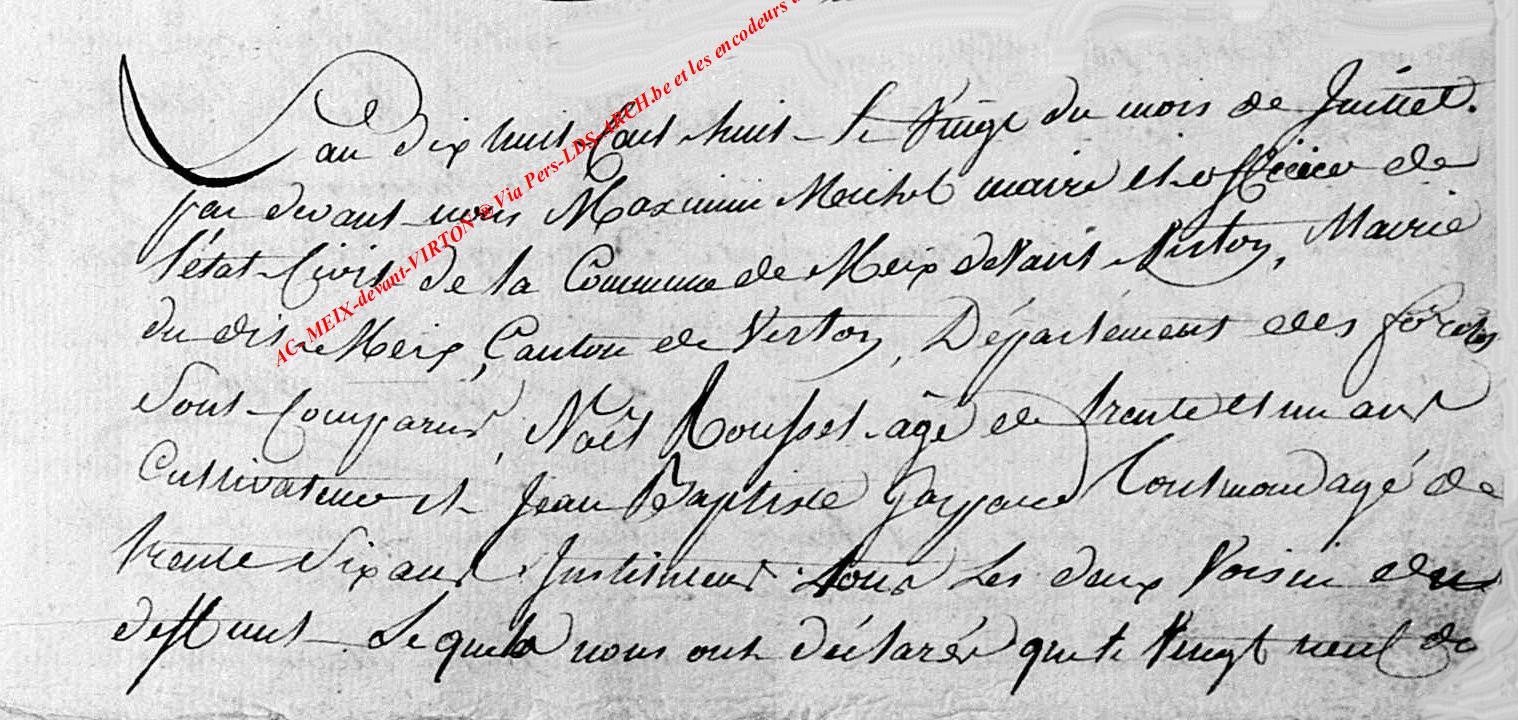 L'an dix huit Cent huit le Vingt du mois de Juillet.
par devant nous Maximin Michel maire et officier de
l'état Civil de la Commune de Meix devant Virton, Mairie
du dit Meix, Canton de Virton, Département des forêts
Sont Comparus, Noël Rousset âgé de trente et un ans
Cultivateur et Jean Baptiste Toutmond agé de
trente Six ans Instituteur tous Les deux Voisin du
deffunt Lequels nous ont déclarés que le Vingt neuf de
AC- MEIX-devant-VIRTON ® Via Pers-LDS-ARCH.be et les encodeurs